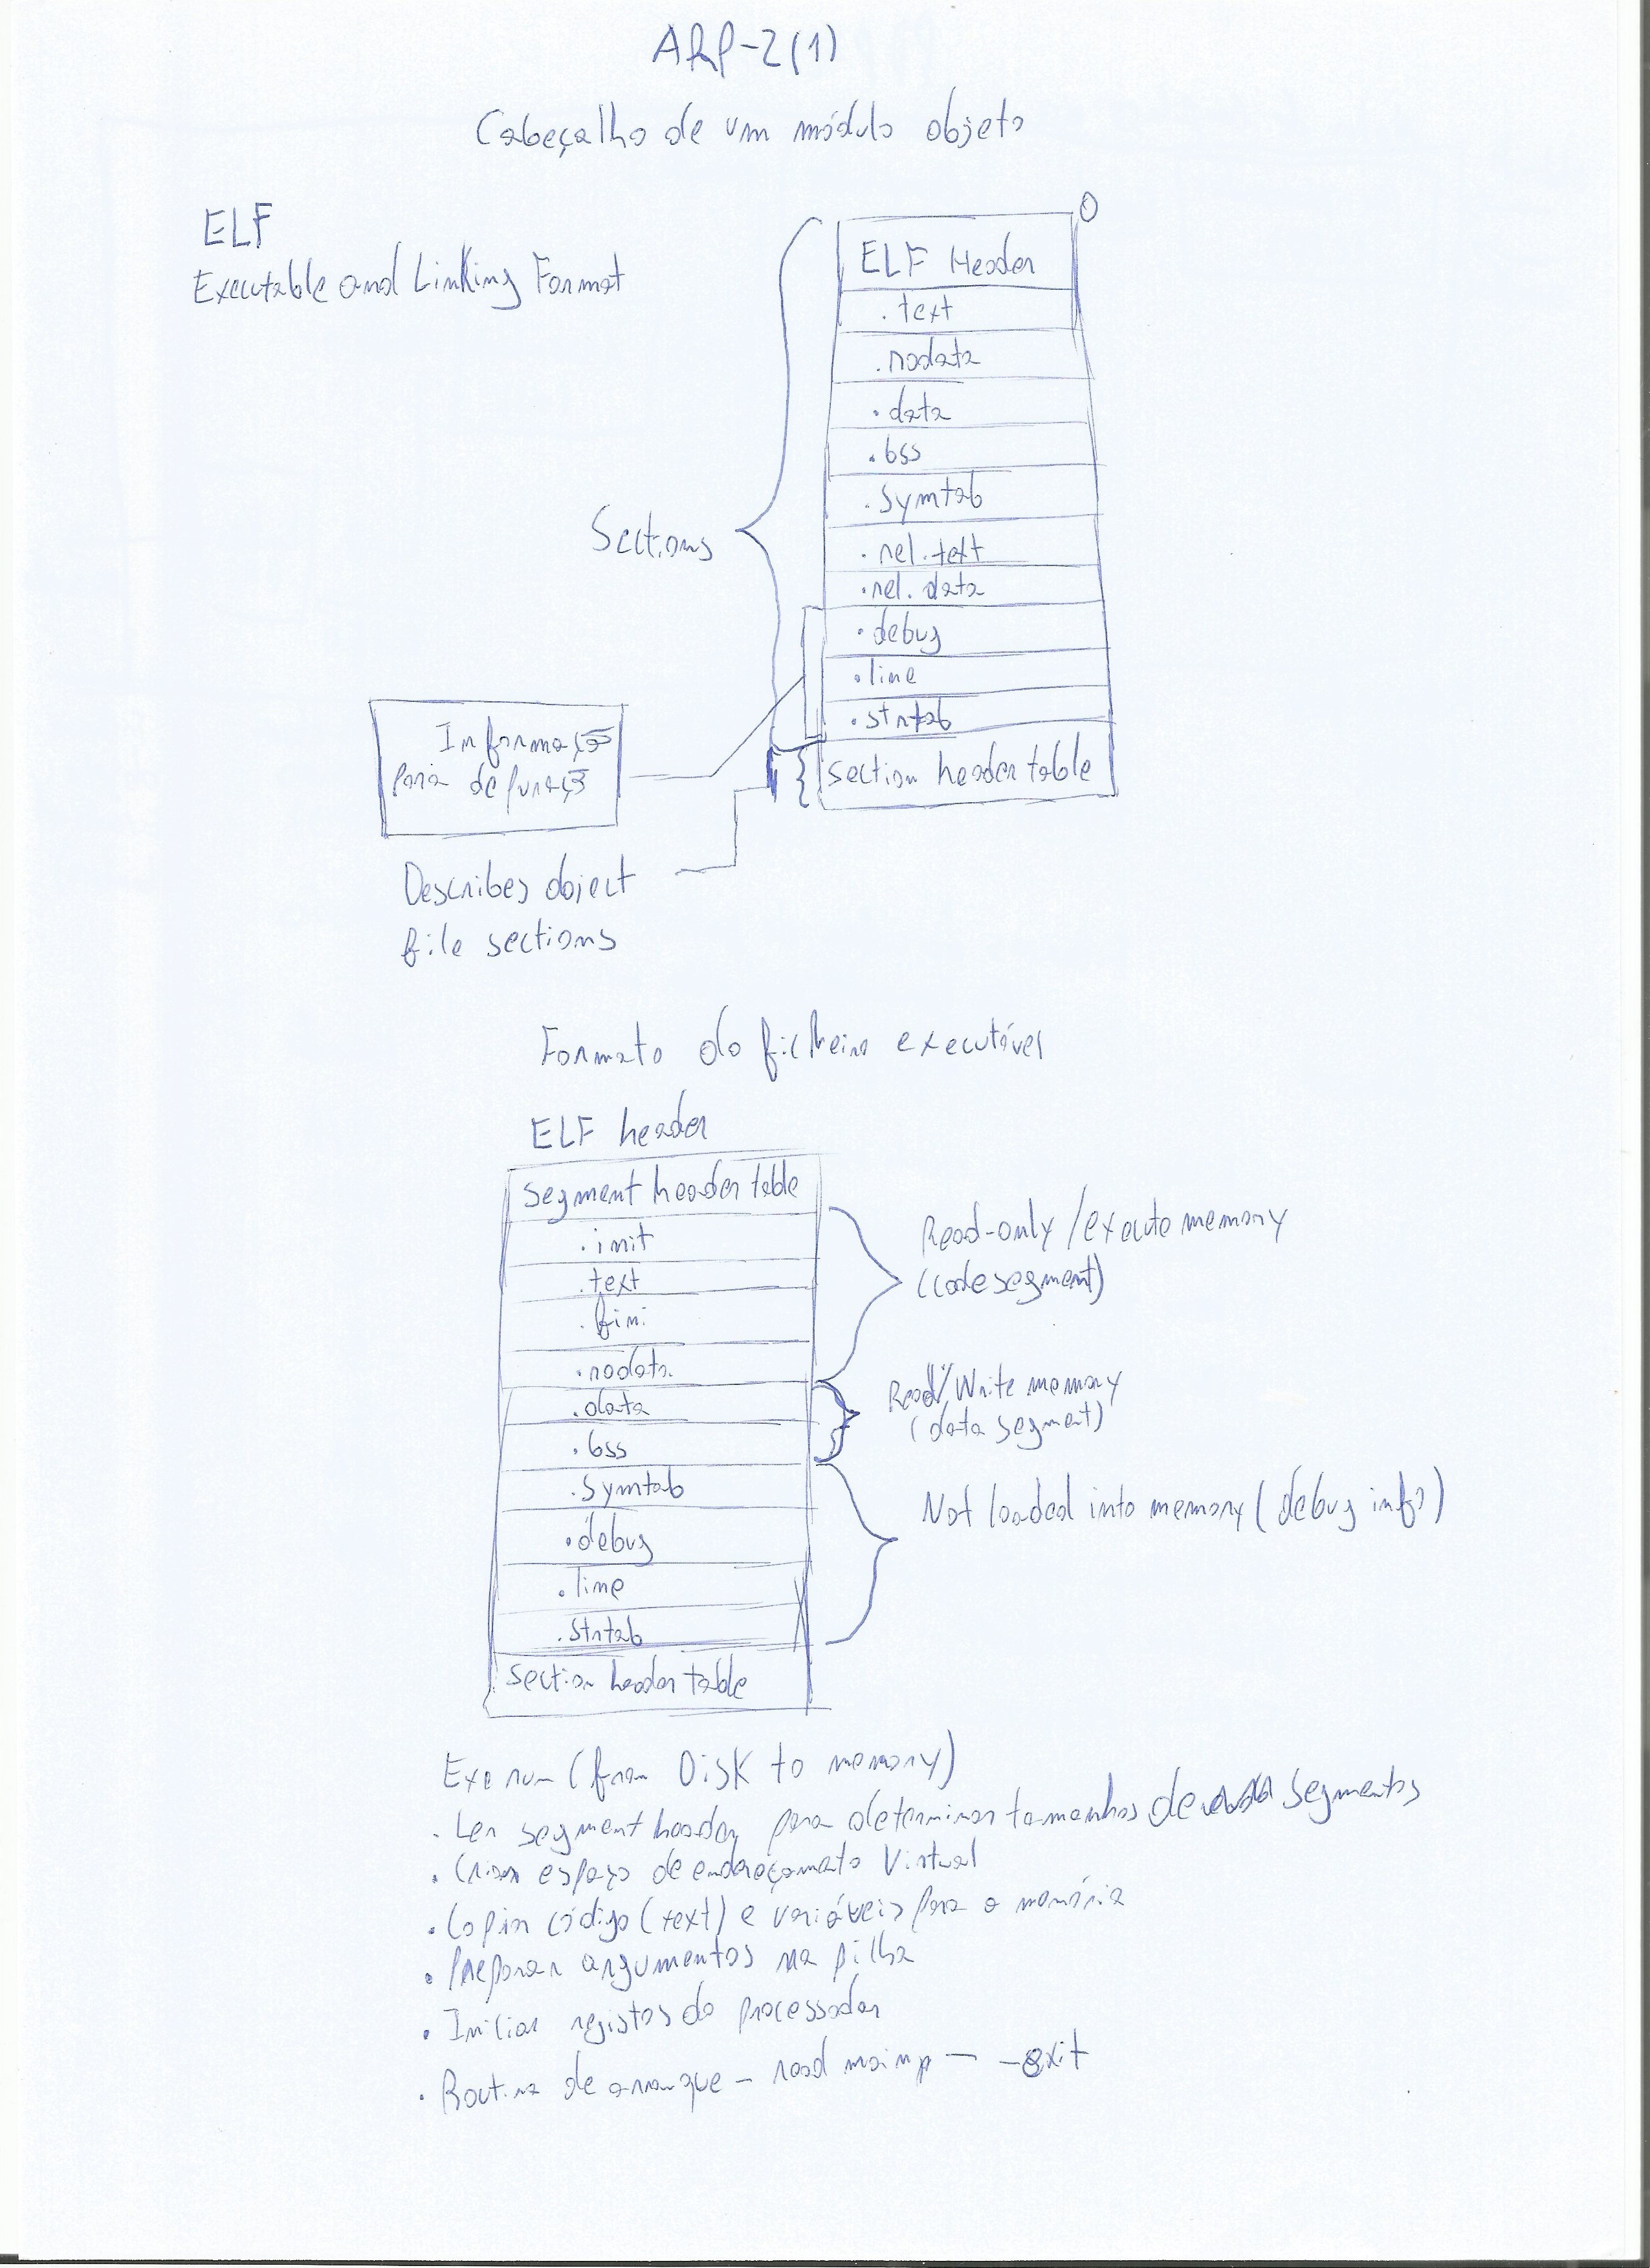 ARP-2(1)
Cabeçalho de um módulo objeto
ELF
Executable and Linking Format
0
ELF Header
.text
.rodata
.data
.bss
.symtab
.rel.text
.rel.data
.debug
.line
.strtab
section header table
Sections
Informação
para depuração
Describes object
file sections
Formato do ficheiro executável
ELF header
segment header table
.init
.text
.fini
.rodata
.data
.bss
.symtab
.debug
.line
.strtab
section header table
Read-only/execute memory
(code segment)
Read/Write memory
(data segment)
Not loaded into memory (debug info)
Exe run (from Disk to memory)
. Ler segment header para determinar tamanhos de segmentos
. Criar espaço de endereçamento Virtual
. Copiar código (text) e variáveis para a memória
. Preparar argumentos na pilha
. Iniciar registos do processador
. Routina de arranque - — -exit